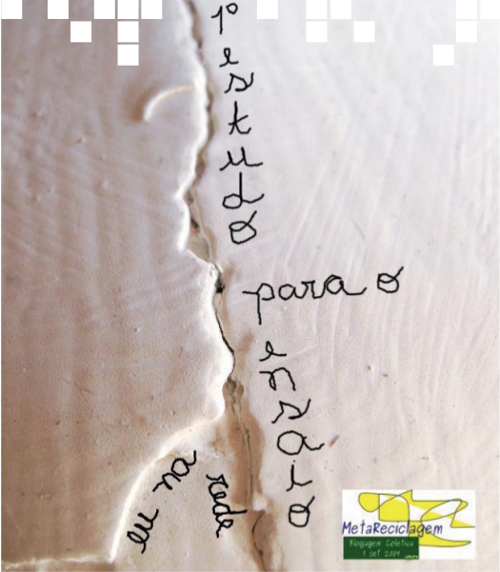 1º estudo
para o
ensaio
eu na rede
MetaReciclagem
Blogagem Coletiva
1 set 2009